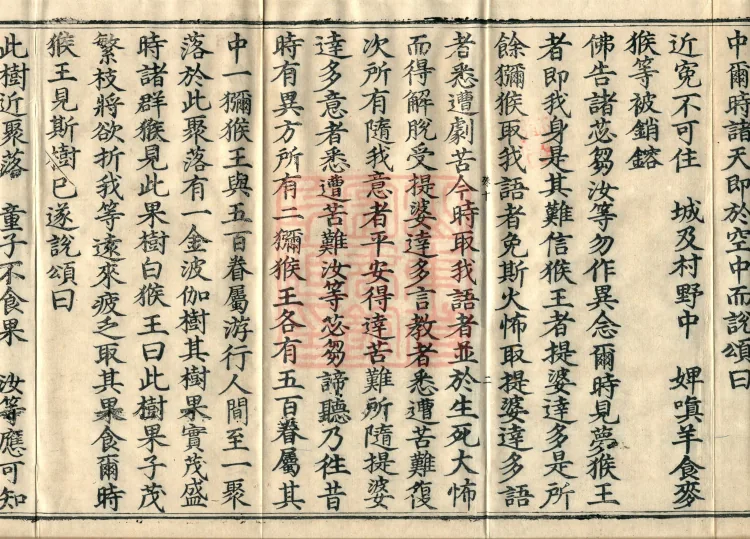 中爾時諸天即於空中而說頌曰
近寃不可住　城及村野中　婢嗔羊食麥
猴等被銷鎔
佛告諸苾芻汝等勿作異念爾時見夢猴王
者即我身是其難信猴王者提婆達多是所
餘獼猴取我語者免斯火怖取提婆達多語
者悉遭劇苦今時取我語者並於生死大怖
卷十　二
而得解脫受提婆達多言教者悉遭苦難復
次所有隨我意者平安得達苦難所隨提婆
達多意者悉遭苦難汝等苾芻諦聽乃往昔
時有異方所有二獼猴王各有五百眷屬其
中一獼猴王與五百眷屬游行人間至一聚
落於此聚落有一金波伽樹其樹果實茂盛
時諸群猴見此果樹白猴王曰此樹果子茂
繁枝將欲折我等遠來疲乏取其果食爾時
猴王見斯樹已遂說頌曰
此樹近聚落　童子不食果　汝等應可知